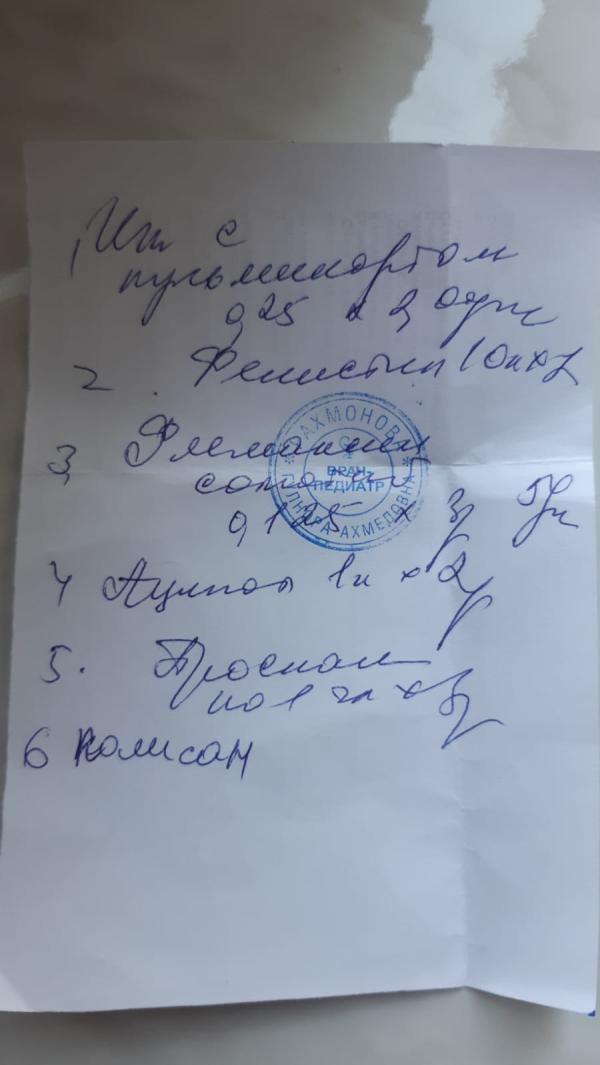 1, Инг с
пульмикортом
0,25 х 2р 3дн
2. Фенистил 10к х 2р
3, Флемоксин
солютаб
0,125 х 3р 5дн
4 Аципол 1к х 2р
5. Проспан
по 1 чл х 3р
6 Колисан
АХМОНОВ
ВРАЧ
ПЕДИАТР
АХМЕДОВНА